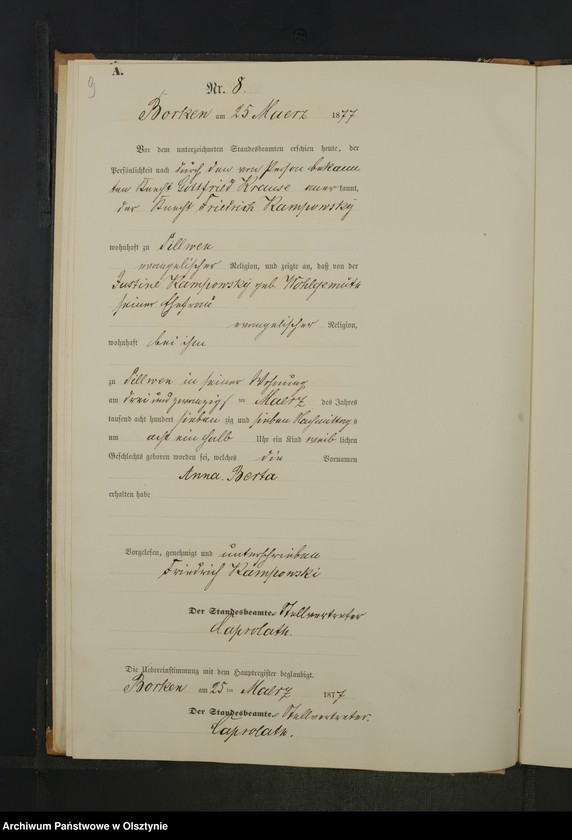 A.
9
Nr. 8.
Borken am 25 Maerz 1877
Vor dem unterzeichneten Standesbeamten erschien heute, der
Persönlichkeit nach durch den von Person bekann
ten Knecht Gottfried Krause aner kannt,
der Knecht Friedrich Kampowsky
wohnhaft zu Sillwen
evangelischer Religion, und zeigte an, daß von der
Justine Kampowsky geb. Wohlgemuth
seiner Ehefrau
evangelischer Religion,
wohnhaft bei ihm
zu Sillwen in seiner Wohnung
am drei und zwanzigsten Maerz des Jahres
tausend acht hundert sieben zig und sieben Nachmittags
um acht ein halb Uhr ein Kind weib lichen
Geschlechts geboren worden sei, welches die Vornamen
Anna Berta
erhalten habe
Vorgelesen, genehmigt und unterschrieben
Friedrich Kampowski
Der Standesbeamte. Stellvertreter
Caprolath.
Die Uebereinstimmung mit dem Hauptregister beglaubigt.
Borken am 25 ten Maerz 1877
Der Standesbeamte. Stellvertreter.
Caprolath.
Archiwum Państwowe w Olsztynie